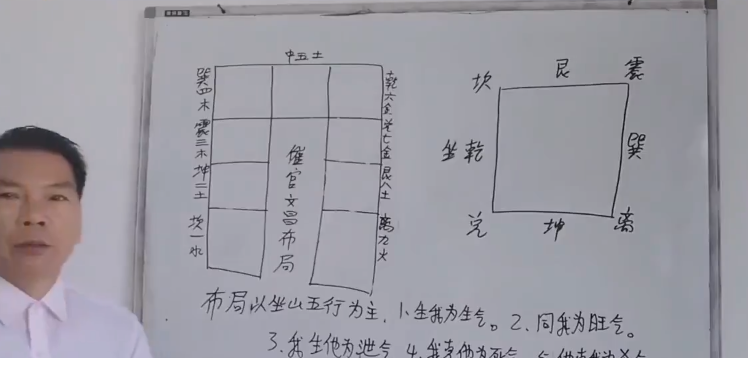 中五土
巽四木
震三木
坤二土
坎一水
乾六金
兑七金
艮八土
离九火
催官文昌布局
坎 艮 震
坐乾 巽
兑 坤 离
布局以坐山五行为主、1.生我为生气。2、同我为旺气。
3、我生他为泄气 4、我克他为死气